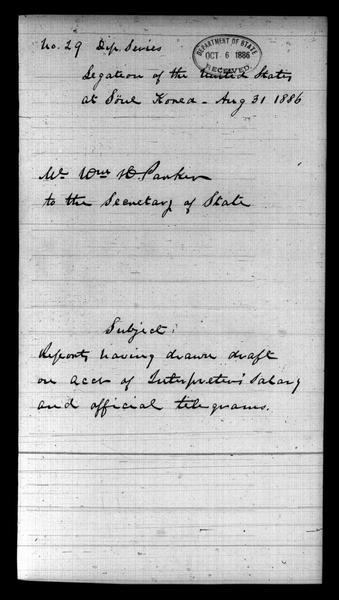 No. 29 Dip. Series
DEPARTMENT OF STATE
OCT 6 1886
RECEIVED
Legation of the United States
at Söul Korea - Aug 31 1886
Mr. Wm H Parker
to the Secretary of State
Subject:
Reports having drawn draft
on acct of Interpreter's Salary
and official telegrams.